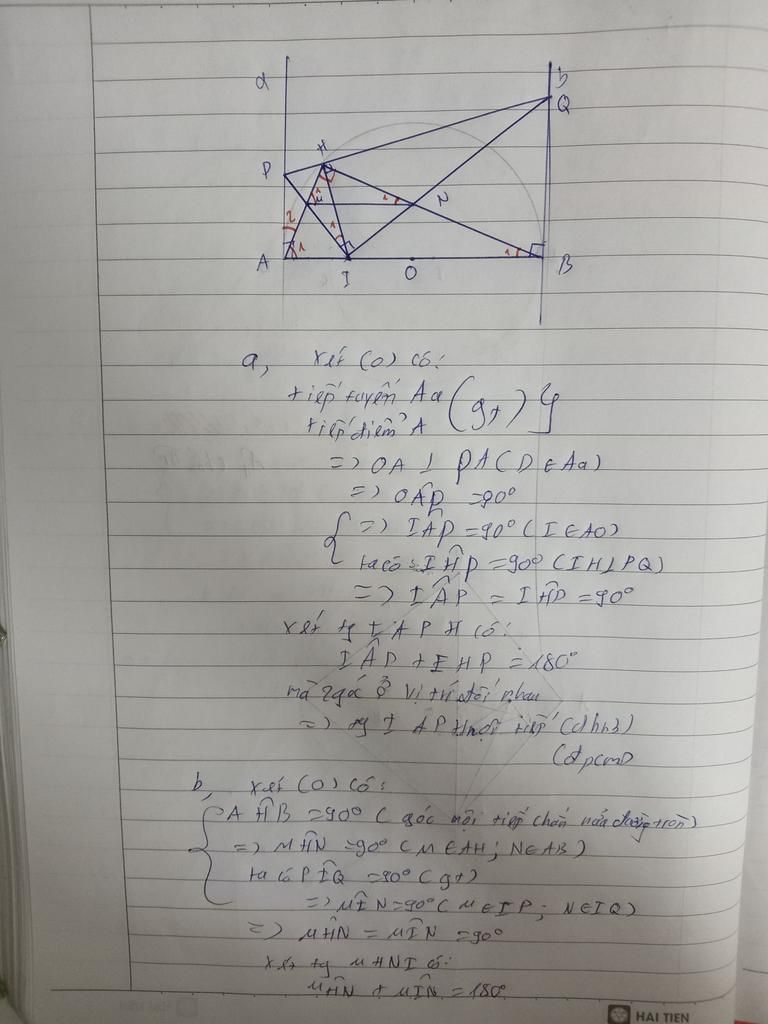 a
b
Q
H
P
M
N
1
1
1
2
1
1
A
I
O
B
a, xét (O) có:
tiếp tuyến Aa
tiếp điểm A
(gt) }
=> OA ⊥ PA (P ∈ Aa)
=> OÂP = 90°
=> IÂP = 90° (I ∈ AO)
ta có: IĤP = 90° (IH ⊥ PQ)
=> IÂP = IĤP = 90°
xét tg IAPH có:
IÂP + IHP = 180°
mà 2 góc ở vị trí đối nhau
=> tg IAPH nội tiếp (dhnb)
(đpcm)
b, xét (O) có:
AĤB = 90° (góc nội tiếp chắn nửa đường tròn)
=> MĤN = 90° (M ∈ AH; N ∈ AB)
ta có PÎQ = 90° (gt)
=> MÎN = 90° (M ∈ IP; N ∈ IQ)
=> MĤN = MÎN = 90°
xét tg MHNI có:
MĤN + MÎN = 180°
HAI TIEN